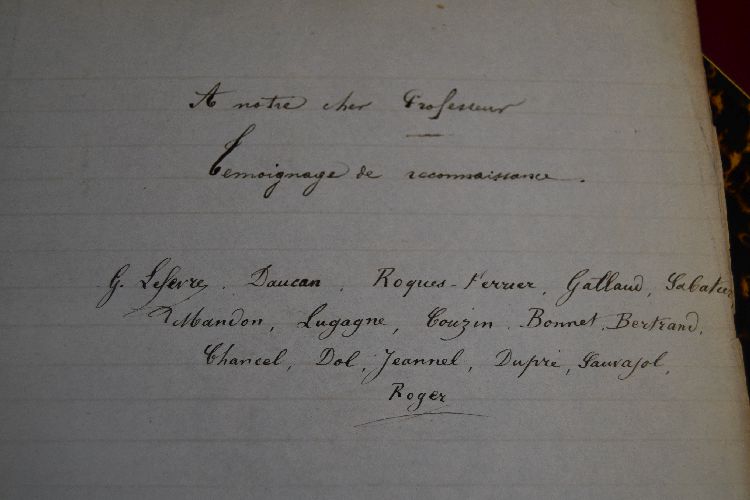 A notre cher Professeur
Temoignage de reconnaissance.
G. Lefevre. Daucan. Roques-Ferrier, Gallaud, Sabatier
Mandon, Lugagne, Couzin. Bonnet, Bertrand,
Chancel, Dol, Jeannel, Dupré, Sauvajol,
Roger